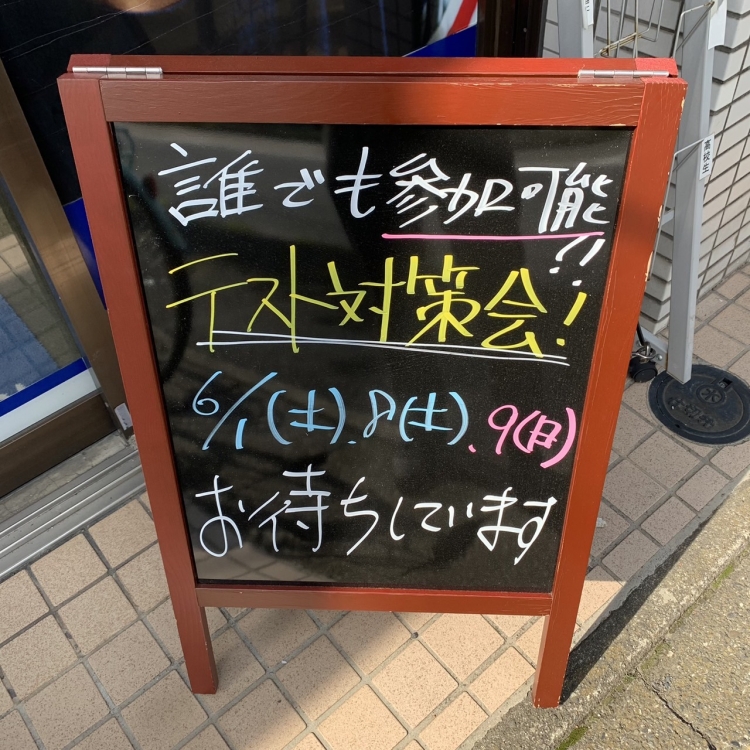 誰でも参加可能!!
テスト対策会!
6/1(土).8(土).9(日)
お待ちしています
高校生